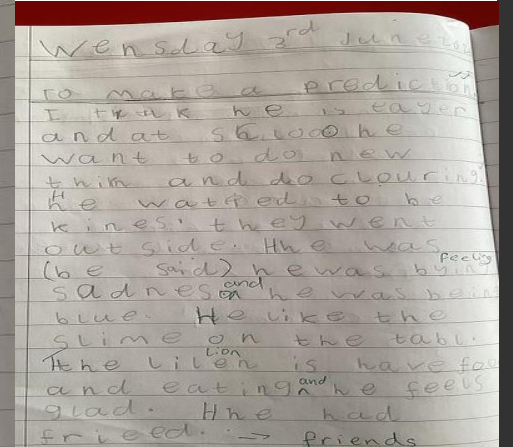 Wensday 3rd June
to make a prediction
I think he is eager
and at shcool he
want to do new
thim and do clouring
He watted to be
kines. they went
out side. Hhe was
(be said) he was by feeling
sadnes and he was bein
blue. He like the
slime on the tabl.
The lilen Lion is have foo
and eating and he feels
glad. Hhe had
frieed. → friends